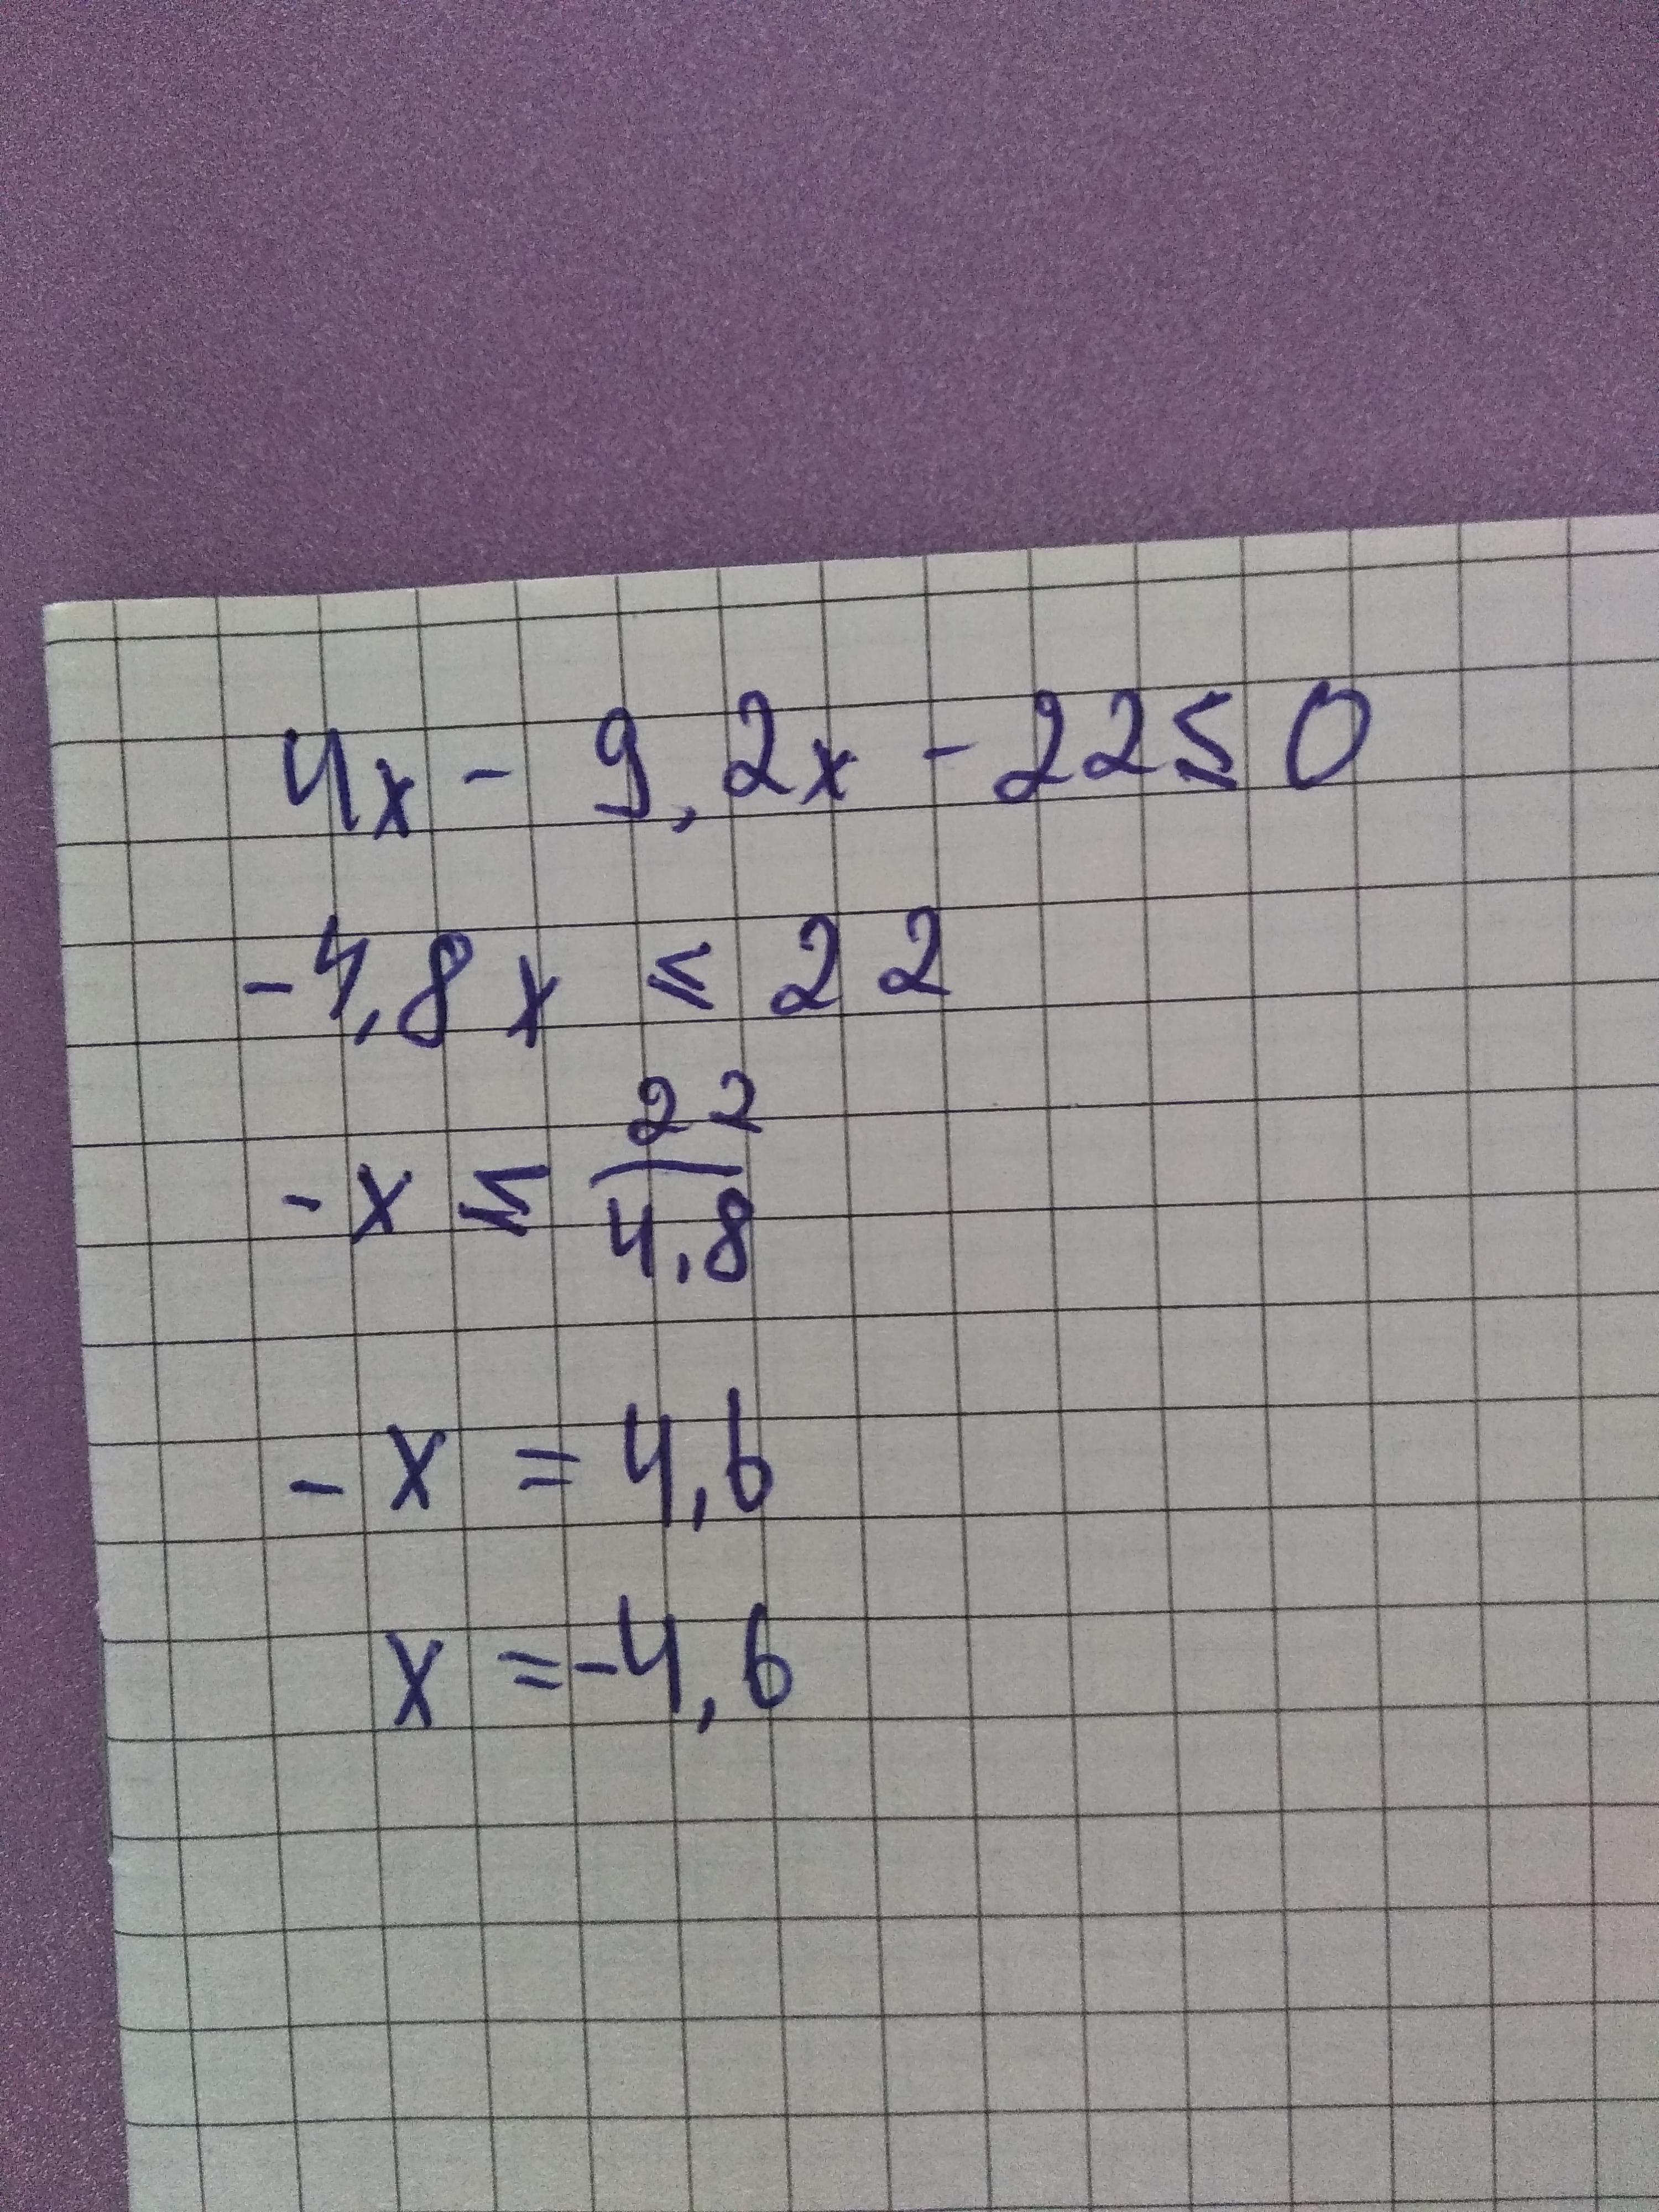 4x - 9,2x - 22 ≤ 0
-4,8x ≤ 22
-x ≤ 22/4,8
-x = 4,6
x = -4,6